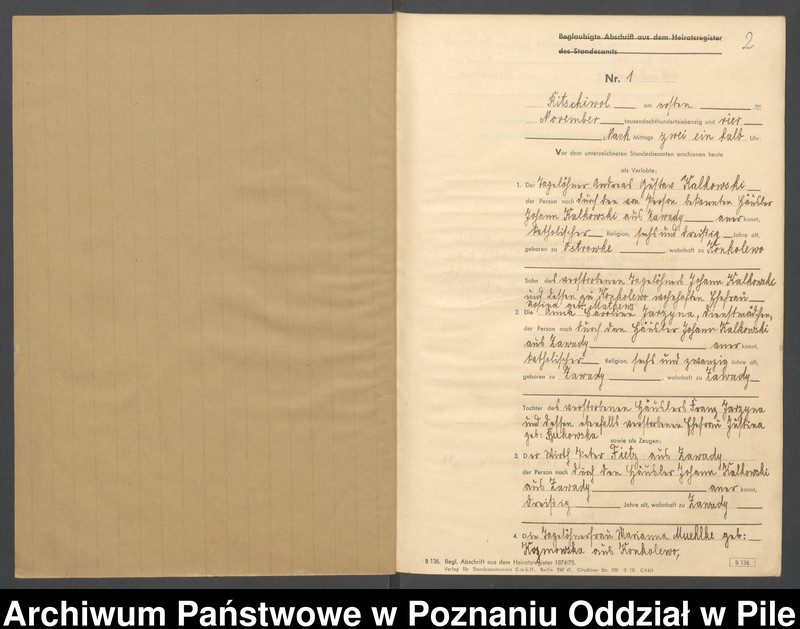 Beglaubigte Abschrift aus dem Heiratsregister
des Standesamts
2
Nr. 1
Kitschiwol am ersten ten
November tausendachthundertsiebenzig und vier
Nach Mittags zwei ein halb Uhr.
Vor dem unterzeichneten Standesbeamten erschienen heute
als Verlobte:
1. Der Tagelöhner Andreas Gustav Kalkowski
der Person nach durch den von Person bekannten Häusler
Johann Kalkowski aus Zawady anerkannt,
katholischer Religion, sechs und dreißig Jahre alt,
geboren zu Ostrowke, wohnhaft zu Konkolewo
Sohn des verstorbenen Tagelöhners Johann Kalkowski
und dessen zu Konkolewo wohnhaften Ehefrau
Rosina geb:
2. Die Anna Caroline Jarzyna, Dienstmädchen,
der Person nach durch den Häusler Johann Kalkowski
aus Zawady anerkannt,
katholischer Religion, sechs und zwanzig Jahre alt,
geboren zu Zawady, wohnhaft zu Zawady
Tochter des verstorbenen Häuslers Franz Jarzyna
und dessen ebenfalls verstorbenen Ehefrau Justina
geb:
sowie als Zeugen:
3. Der Wirth Peter Fietz aus Zawady
der Person nach durch den Häusler Johann Kalkowski
aus Zawady anerkannt,
dreißig Jahre alt, wohnhaft zu Zawady
4. Die Tagelöhnerfrau Marianna Muehlke geb:
Kozmowska aus Konkolewo,
B 136. Begl. Abschrift aus dem Heiratsregister 1874/75.
Verlag für Standesamtswesen G.m.b.H., Berlin SW 61, Gitschiner Str. 109.
B 136
Archiwum Państwowe w Poznaniu Oddział w Pile